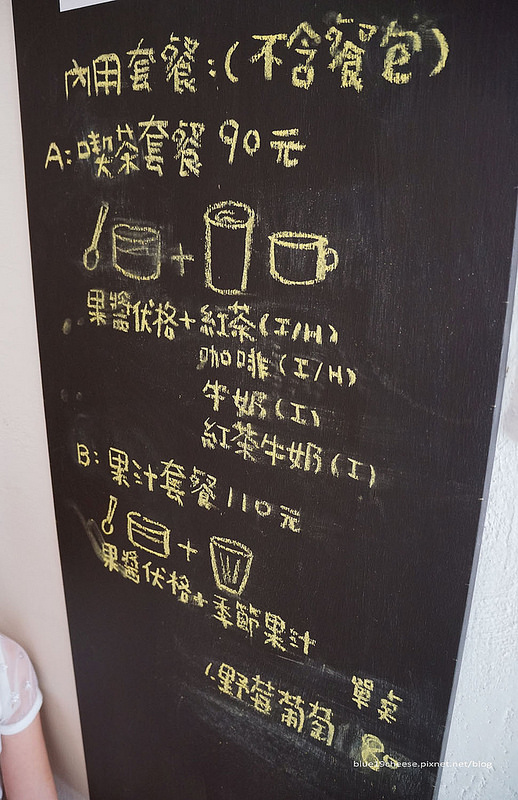 內用套餐:(不含餐包)
A:喫茶套餐 90元
果醬优格+紅茶(I/H)
咖啡(I/H)
牛奶(I)
紅茶牛奶(I)
B:果汁套餐110元
果醬优格+季節果汁
單点
1.野莓葡萄
blue29cheese.pixnet.net/blog